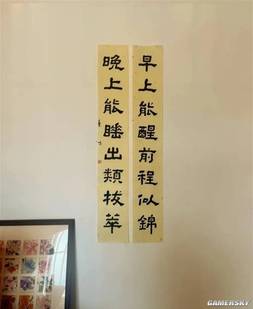 早上能醒前程似錦
晚上能睡出類拔萃
GAMERSKY